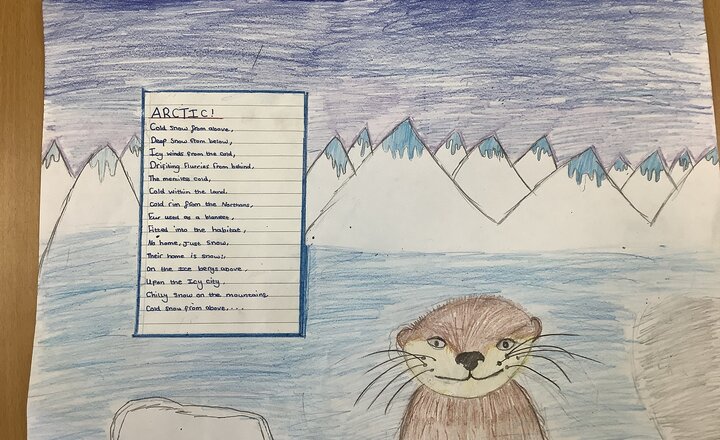 ARCTIC!
Cold snow from above,
Deep snow from below,
Icy winds from the cold,
Drifting Flurries from behind,
The merciless cold,
Cold within the land,
Cold rim from the Northans,
Fur used as a blanket,
Fitted into the habitat,
No home, just snow,
Their home is snow!,
On the Ice bergs above,
Upon the Icy city,
Chilly snow on the mountains
Cold snow from above,....